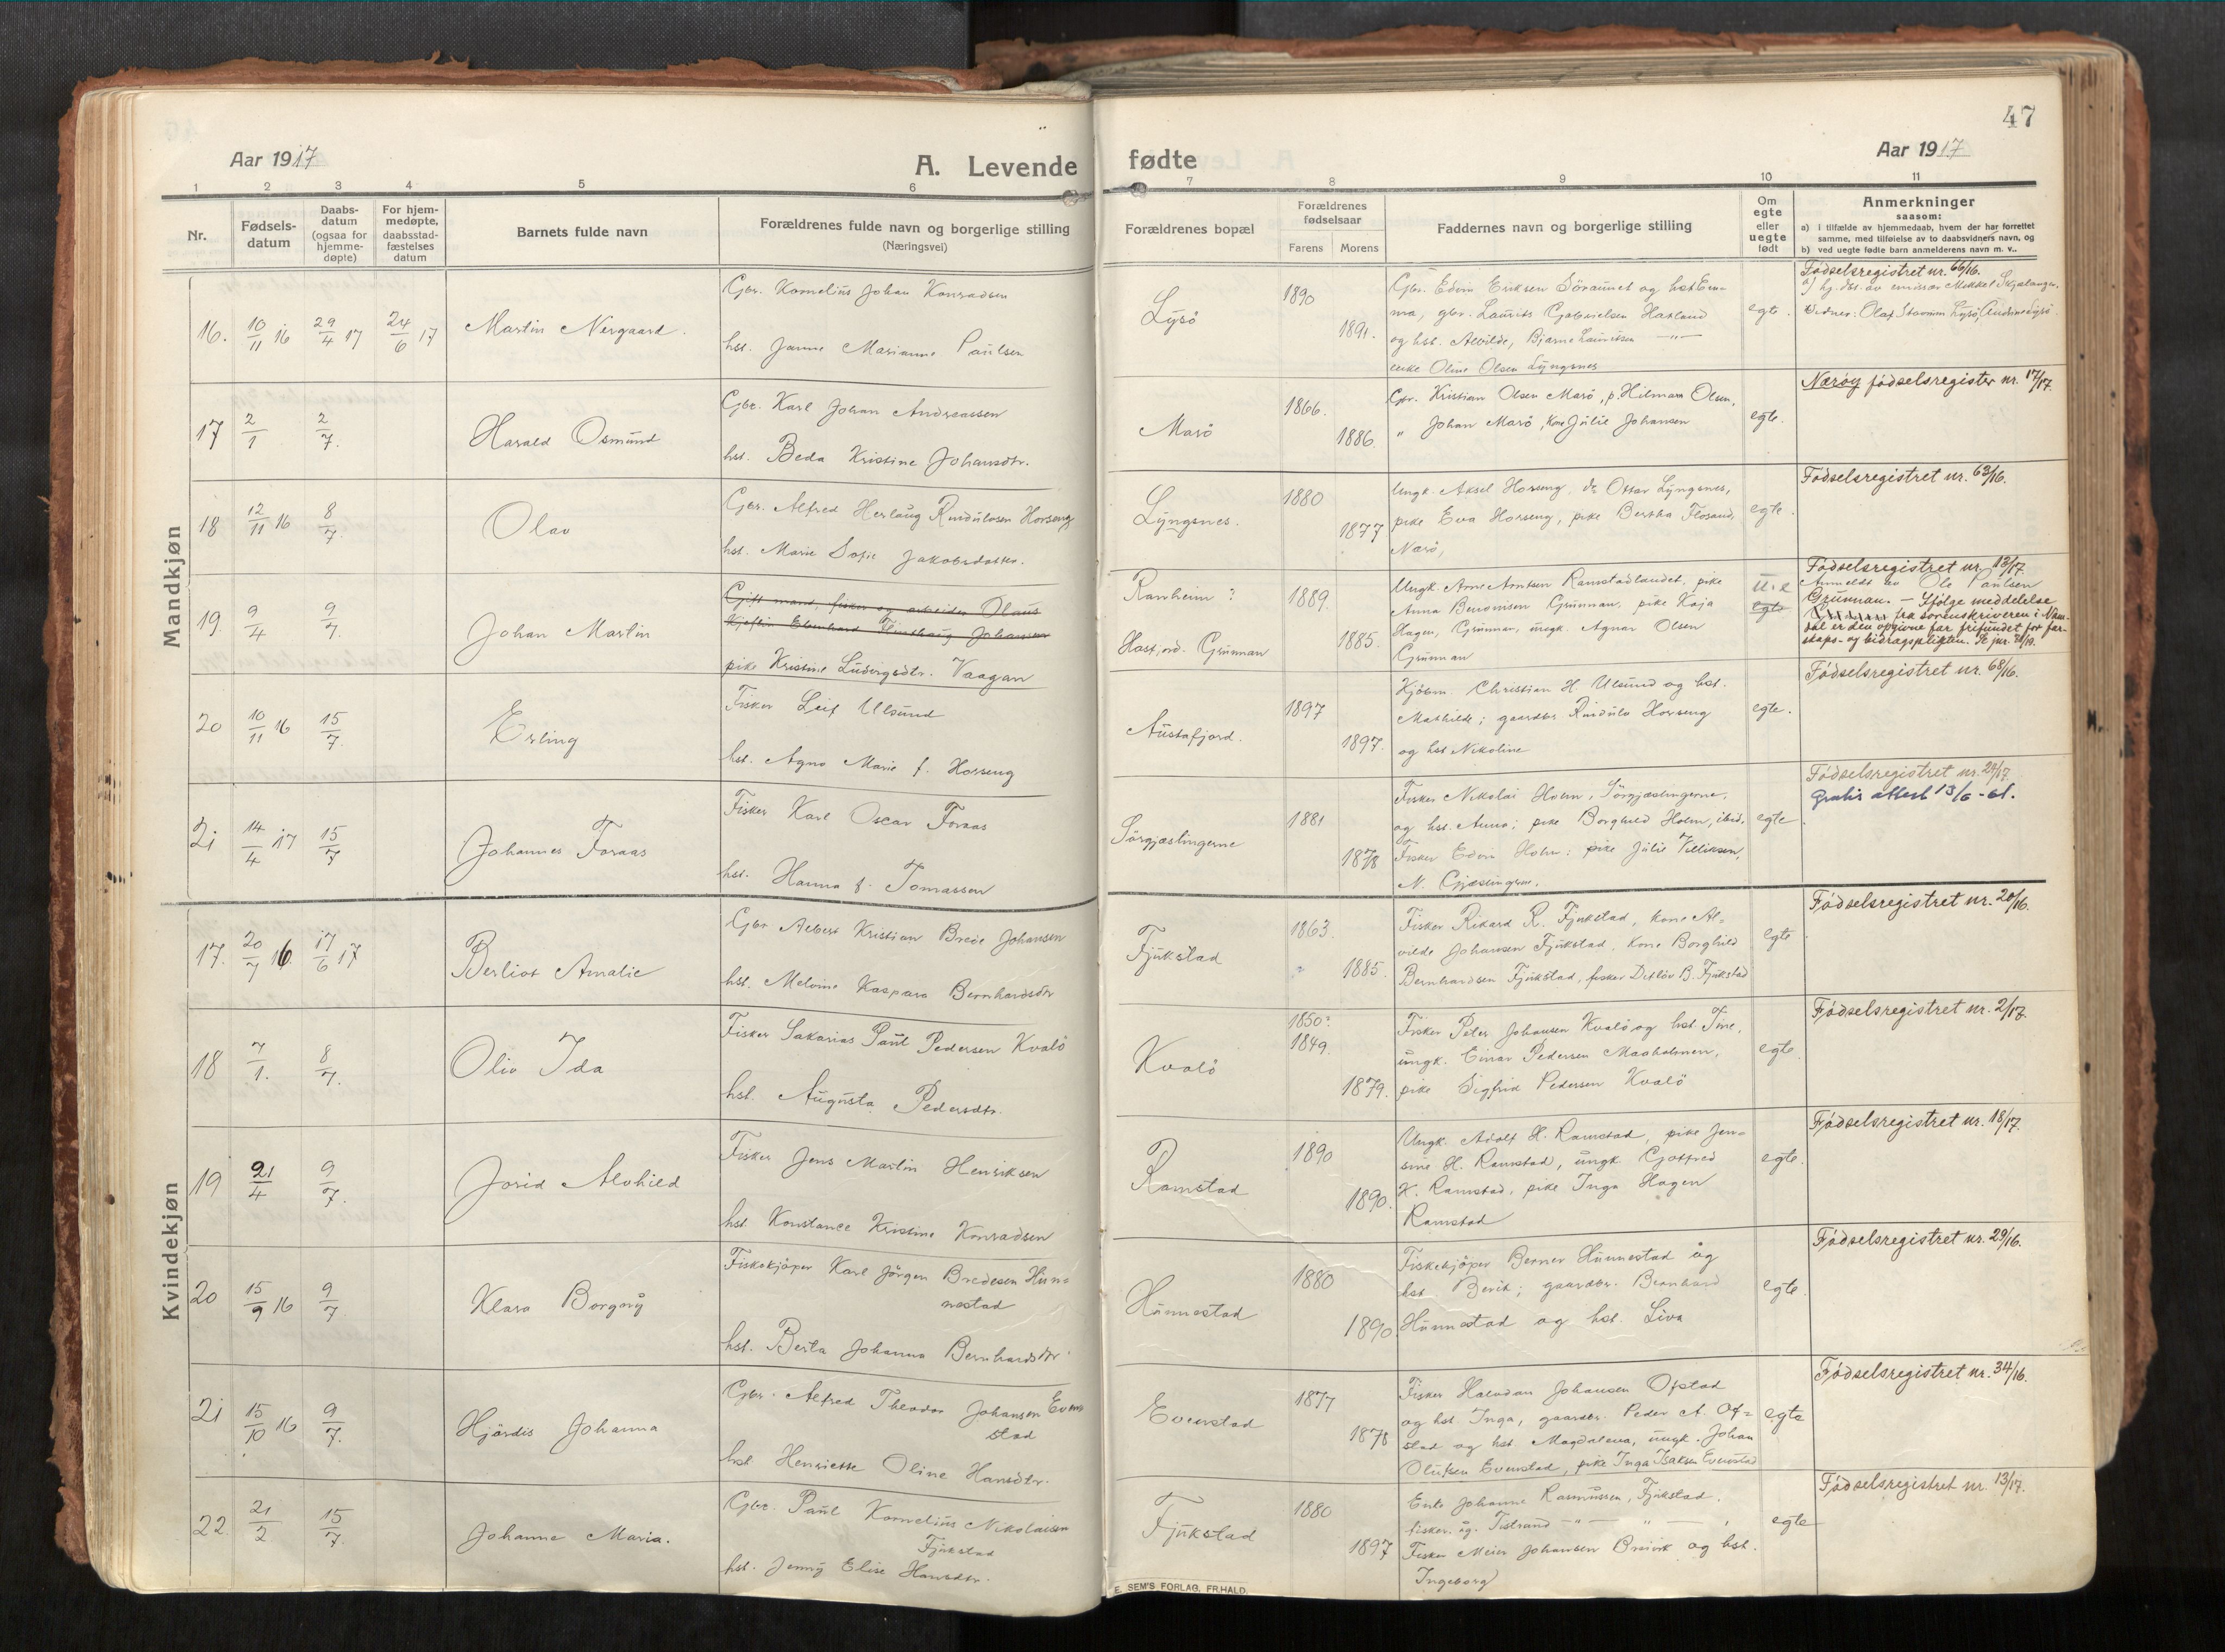 47
Aar 1917
A. Levende fødte
Aar 1917
1 2 3 4 5 6 7 8 9 10 11
Nr.
Fødsels-
datum
Daabs-
datum
(ogsaa for
hjemme-
døpte)
For hjem-
medøpte,
daabsstad-
fæstelses
datum
Barnets fulde navn
Forældrenes fulde navn og borgerlige stilling
(Næringsvei)
Forældrenes bopæl
Forældrenes
fødselsaar
Farens Morens
Faddernes navn og borgerlige stilling
Om
egte
eller
uegte
født
Anmerkninger
saasom:
a) i tilfælde av hjemmedaab, hvem der har forrettet
samme, med tilføielse av to daabsvidners navn, og
b) ved uegte fødte barn anmelderens navn m. v..
Mandkjøn
16. 10/11 16 29/4 17 24/6 17
Martin Nergaard.
Gbr. Kornelius Johan Konradsen
hst. Janne Marianne Paulsen
Lysö
1890
1891.
Gbr. Edvin Eriksen Söraunet og hst. Em-
ma, gbr. Laurits Gabrielsen Hasland
og hst. Alvilde, Bjarne Lauritsen —"—
enke Oline Olsen Lyngsnes
egte.
Fødselsregistret nr. 66/16.
a) hj. dbt. av emissær Mikkel Skjælanger.
Vidner: Olaf Stamm Lysö, Andrine Lysö.
17 2/1 2/7.
Harald Osmund
Gbr. Karl Johan Andreassen
hst. Beda Kristine Johansdtr.
Marö
1866.
1886.
Gbr. Kristian Olsen Marö, p. Hilmara Olsen,
" Johan Marö, kone Julie Johansen
egte.
Nærøy fødselsregister nr. 17/17.
18 12/11 16 8/7.
Olav
Gbr. Alfred Herlaug Rindulvsen Horseng
hst. Marie Sofie Jakobsdatter.
Lyngsnes.
1880
1877
Ungk. Aksel Horseng, do Ottar Lyngsnes,
pike Eva Horseng, pike Bertha Flosand,
Nærö,
egte.
Fødselsregistret nr. 63/16.
19. 9/4 9/7.
Johan Martin
Gift mand, fisker og arbeider Olaus
Kjeflin Eberhard Flinthaug Johansen
pike Kristine Ludvigsdtr. Vaagan
Ranheim ?
Hosfjord. Grunnan
1889.
1885.
Ungk. Arne Arntsen Ramstadlandet, pike
Anna Benonisen Grunnan, pike Kaja
Hagen, Grunnan, ungk. Agnar Olsen
Grunnan
u. e
egte
Fødselsregistret nr. 13/17.
Anmeldt av Ole Paulsen
Grunnan. — Ifölge meddelelse
fra sorenskriveren i Nam-
dal er den opgivne far frifundet for far-
skaps- og bidragsplikten. Se jnr. 71/19.
20 10/11 16 15/7.
Erling
Fisker Leif Ulsund
hst. Agna Marie f. Horseng
Austafjord.
1897
1897.
Kjöbm. Christian H. Ulsund og hst.
Mathilde; gaardbr Rindulv Horseng
og hst Nikoline
egte.
Fødselsregistret nr. 68/16.
21 14/4 17 15/7
Johannes Foraas
Fisker Karl Oscar Foraas
hst. Hanna f. Tomassen
Sörgjæslingerne
1881
1878
Fisker Nikolai Holm, Sörgjæslingerne,
og hst. Anna; pike Borghild Holm, ibid.
Fisker Edvin Holm; pike Julie Villiksen,
N. Gjæslingerne.
egte
Fødselsregistret nr. 24/17.
Gratis attest 13/6-61.
Kvindekjøn
17. 20/7 16. 17/6 17
Berliot Amalie
Gbr Albert Kristian Brede Johansen
hst. Melvine Kaspara Bernhardsdtr
Fjukstad
1863.
1885.
Fisker Rikard R. Fjukstad, kone Al-
vilde Johansen Fjukstad, kone Borghild
Bernhardsen Fjukstad, fisker Detlöv B. Fjukstad
egte
Fødselsregistret nr. 20/16.
18 7/1. 8/7.
Oliv Ida
Fisker Sakarias Paul Pedersen Kvalö
hst. Augusta Pedersdtr.
Kvalö
1850?
1849.
1879.
Fisker Peter Johansen Kvalö og hst. Tine,
ungk. Einar Pedersen Maaholmen,
pike Sigfrid Pedersen Kvalö
egte.
Fødselsregistret nr. 2/17.
19 21/4 9/7.
Jorid Alvhild
Fisker Jens Martin Henriksen
hst. Konstance Kristine Konradsen
Ramstad
1890
1890.
Ungk. Adolf H. Ramstad, pike Jen-
sine H. Ramstad, ungk Gotfred
K. Ramstad, pike Inga Hagen
Ramstad
egte.
Fødselsregistret nr. 18/17.
20 15/9 16 9/7.
Klara Borgny
Fiskekjöper Karl Jörgen Bredesen Hun-
nestad
hst. Berta Johanna Bernhardsdtr
Hunnestad
1880
1890
Fiskekjöper Berner Hunnestad og
hst Berit; gaardbr. Bernhard
Hunnestad og hst. Liva
egte.
Fødselsregistret nr. 29/16.
21 15/10 16 9/7.
Hjördis Johanna
Gbr. Alfred Theodor Johansen Even-
stad
hst Henriette Oline Hansdtr.
Evenstad
1877
1878
Fisker Halvdan Johansen Ofstad
og hst. Inga, gaardbr. Peder A. Of-
stad og hst Magdalena, ungk. Johan
Olufsen Evenstad, pike Inga Isaksen Evenstad
egte
Fødselsregistret nr. 34/16.
22. 21/2 15/7.
Johanne Maria.
Gbr. Paul Kornelius Nikolaisen
Fjukstad
hst. Jenny Elise Hansdtr.
Fjukstad
1880
1897
Enke Johanne Rasmussen, Fjukstad.
fisker. og. Tistrand —"— " —
Fisker Meier Johansen Breivik og hst.
Ingeborg
egte
Fødselsregistret nr. 13/17.
E. SEM'S FORLAG, FR.HALD.